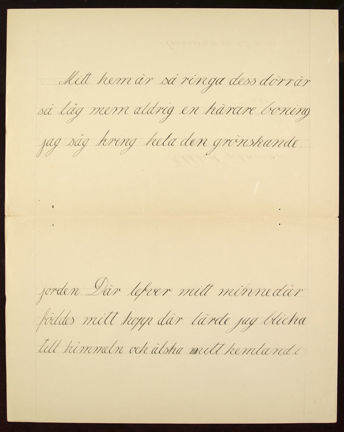 Mitt hem är så ringa dess dörr är
så låg mem aldrig en kärare boning
jag såg kring hela den grönskande
jorden. Där lefver mitt minne där
föddes mitt hopp där lärde jag blicka
till himmeln och älska mitt hemland.